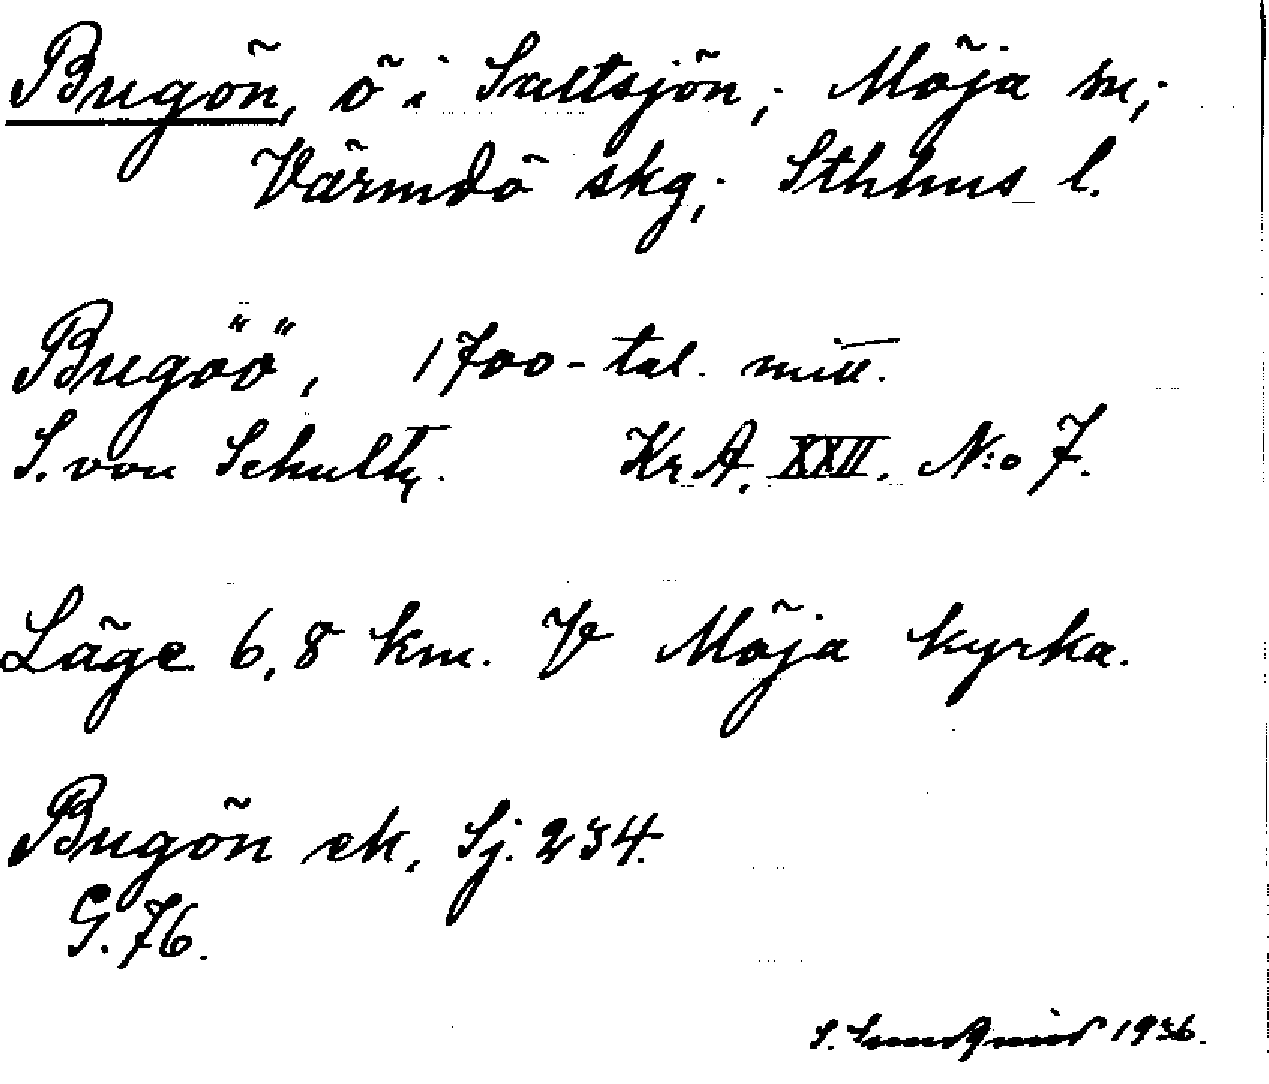 Bugön, ö i Saltsjön; Möja sn;
Värmdö skg; Sthlms l.
Bugöö, 1700-tal. mitt.
S. von Schultz. Kr. A. XXII. N:o 7.
Läge 6,8 km. V Möja kyrka.
Bugön ek. Sj. 234.
G. 76.
S. Sundquist 1936.